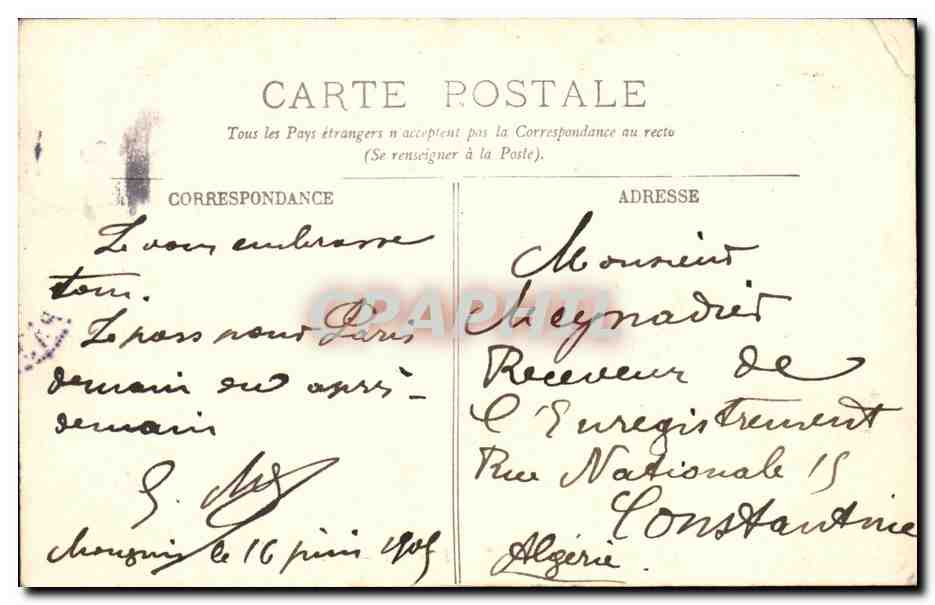 CARTE POSTALE
Tous les Pays étrangers n'acceptent pas la Correspondance au recto
(Se renseigner à la Poste).
CORRESPONDANCE
Je vous embrasse
tous.
Je pars pour Paris
demain ou après-
demain
le 16 juin 1905
ADRESSE
Monsieur
Meynadier
Receveur de
l'Enregistrement
Rue Nationale 15
Constantine
Algérie.
CPAPHIL